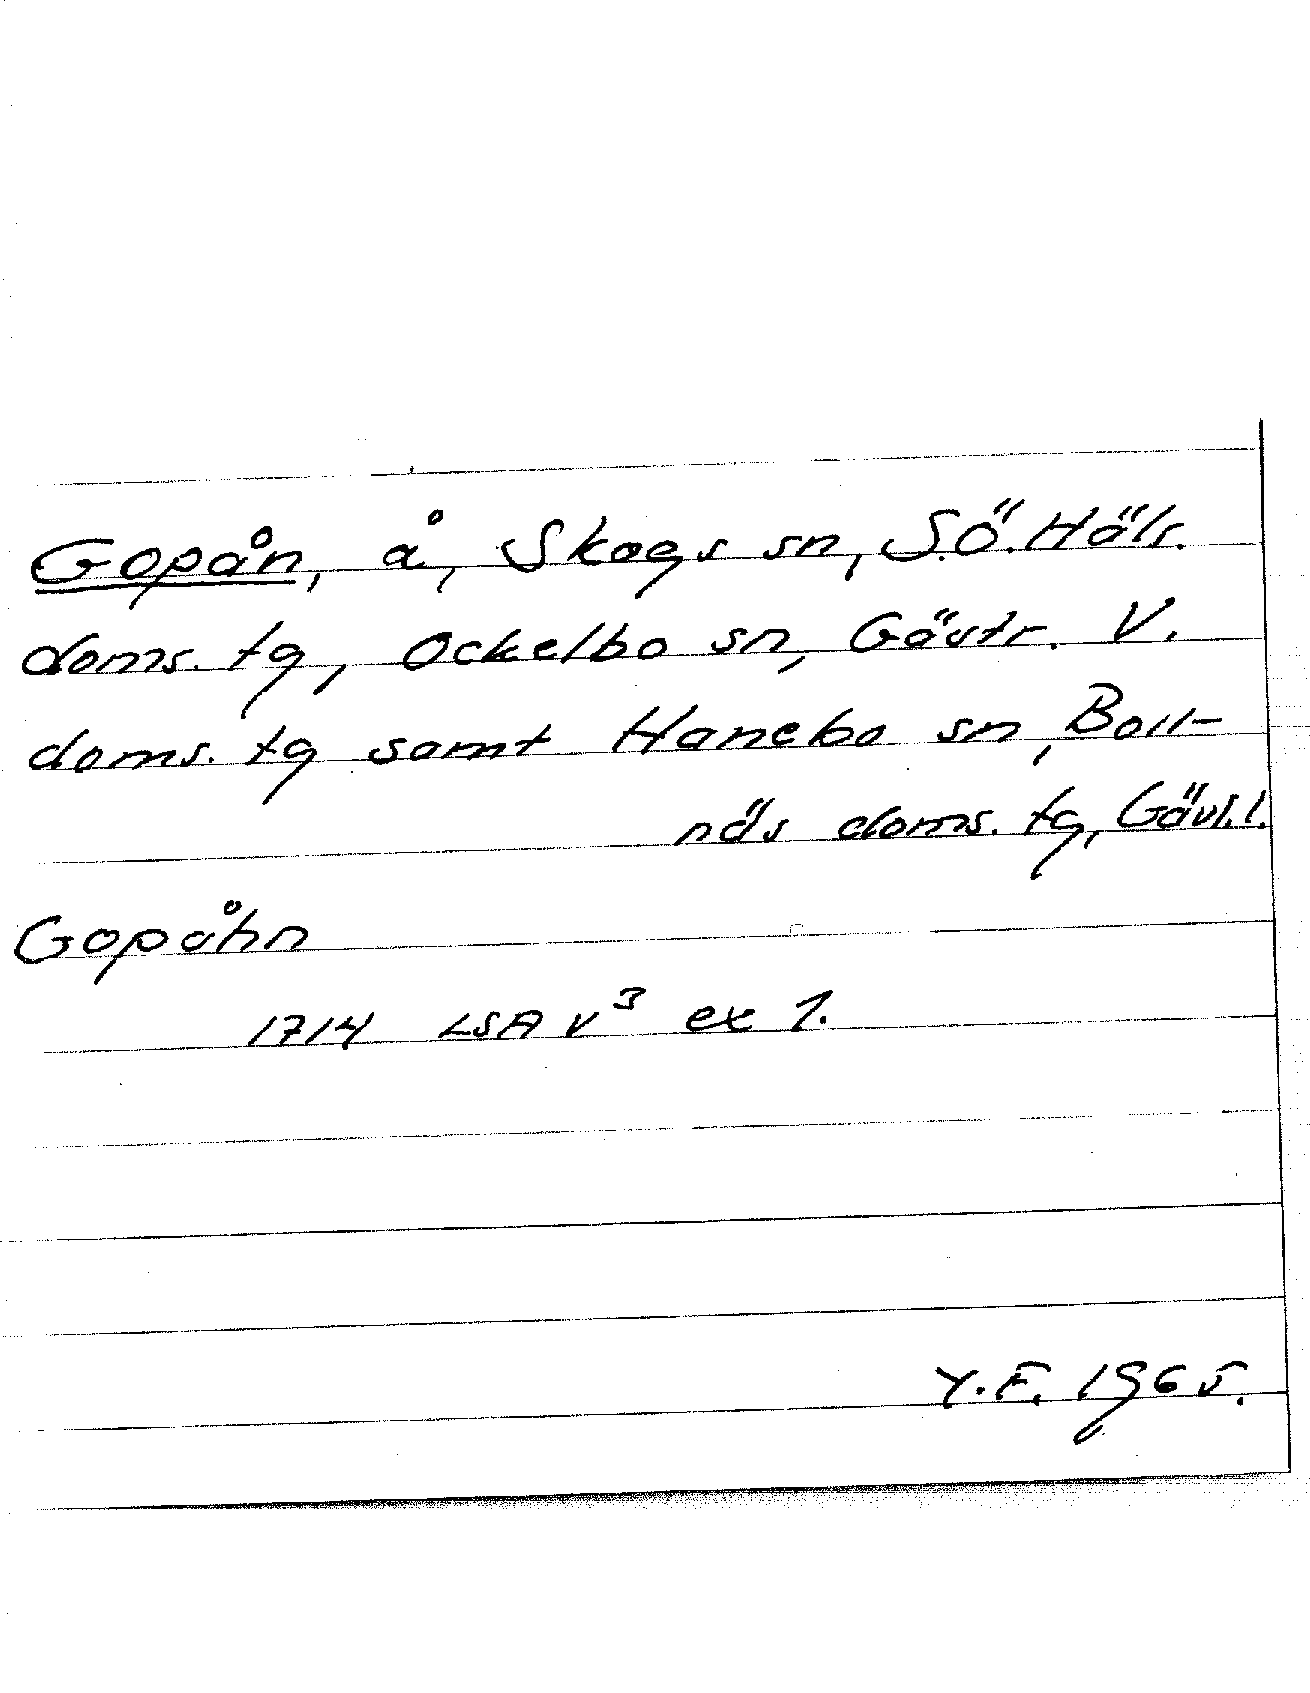 Gopån, å, Skogs sn, S.Ö. Häls.
doms. tg, Ockelbo sn, Gästr. V.
doms. tg samt Hanebo sn, Boll-
näs doms. tg, Gävl. l.
Gopåhn
1714 LSA V³ ex 1.
Y.F. 1965.